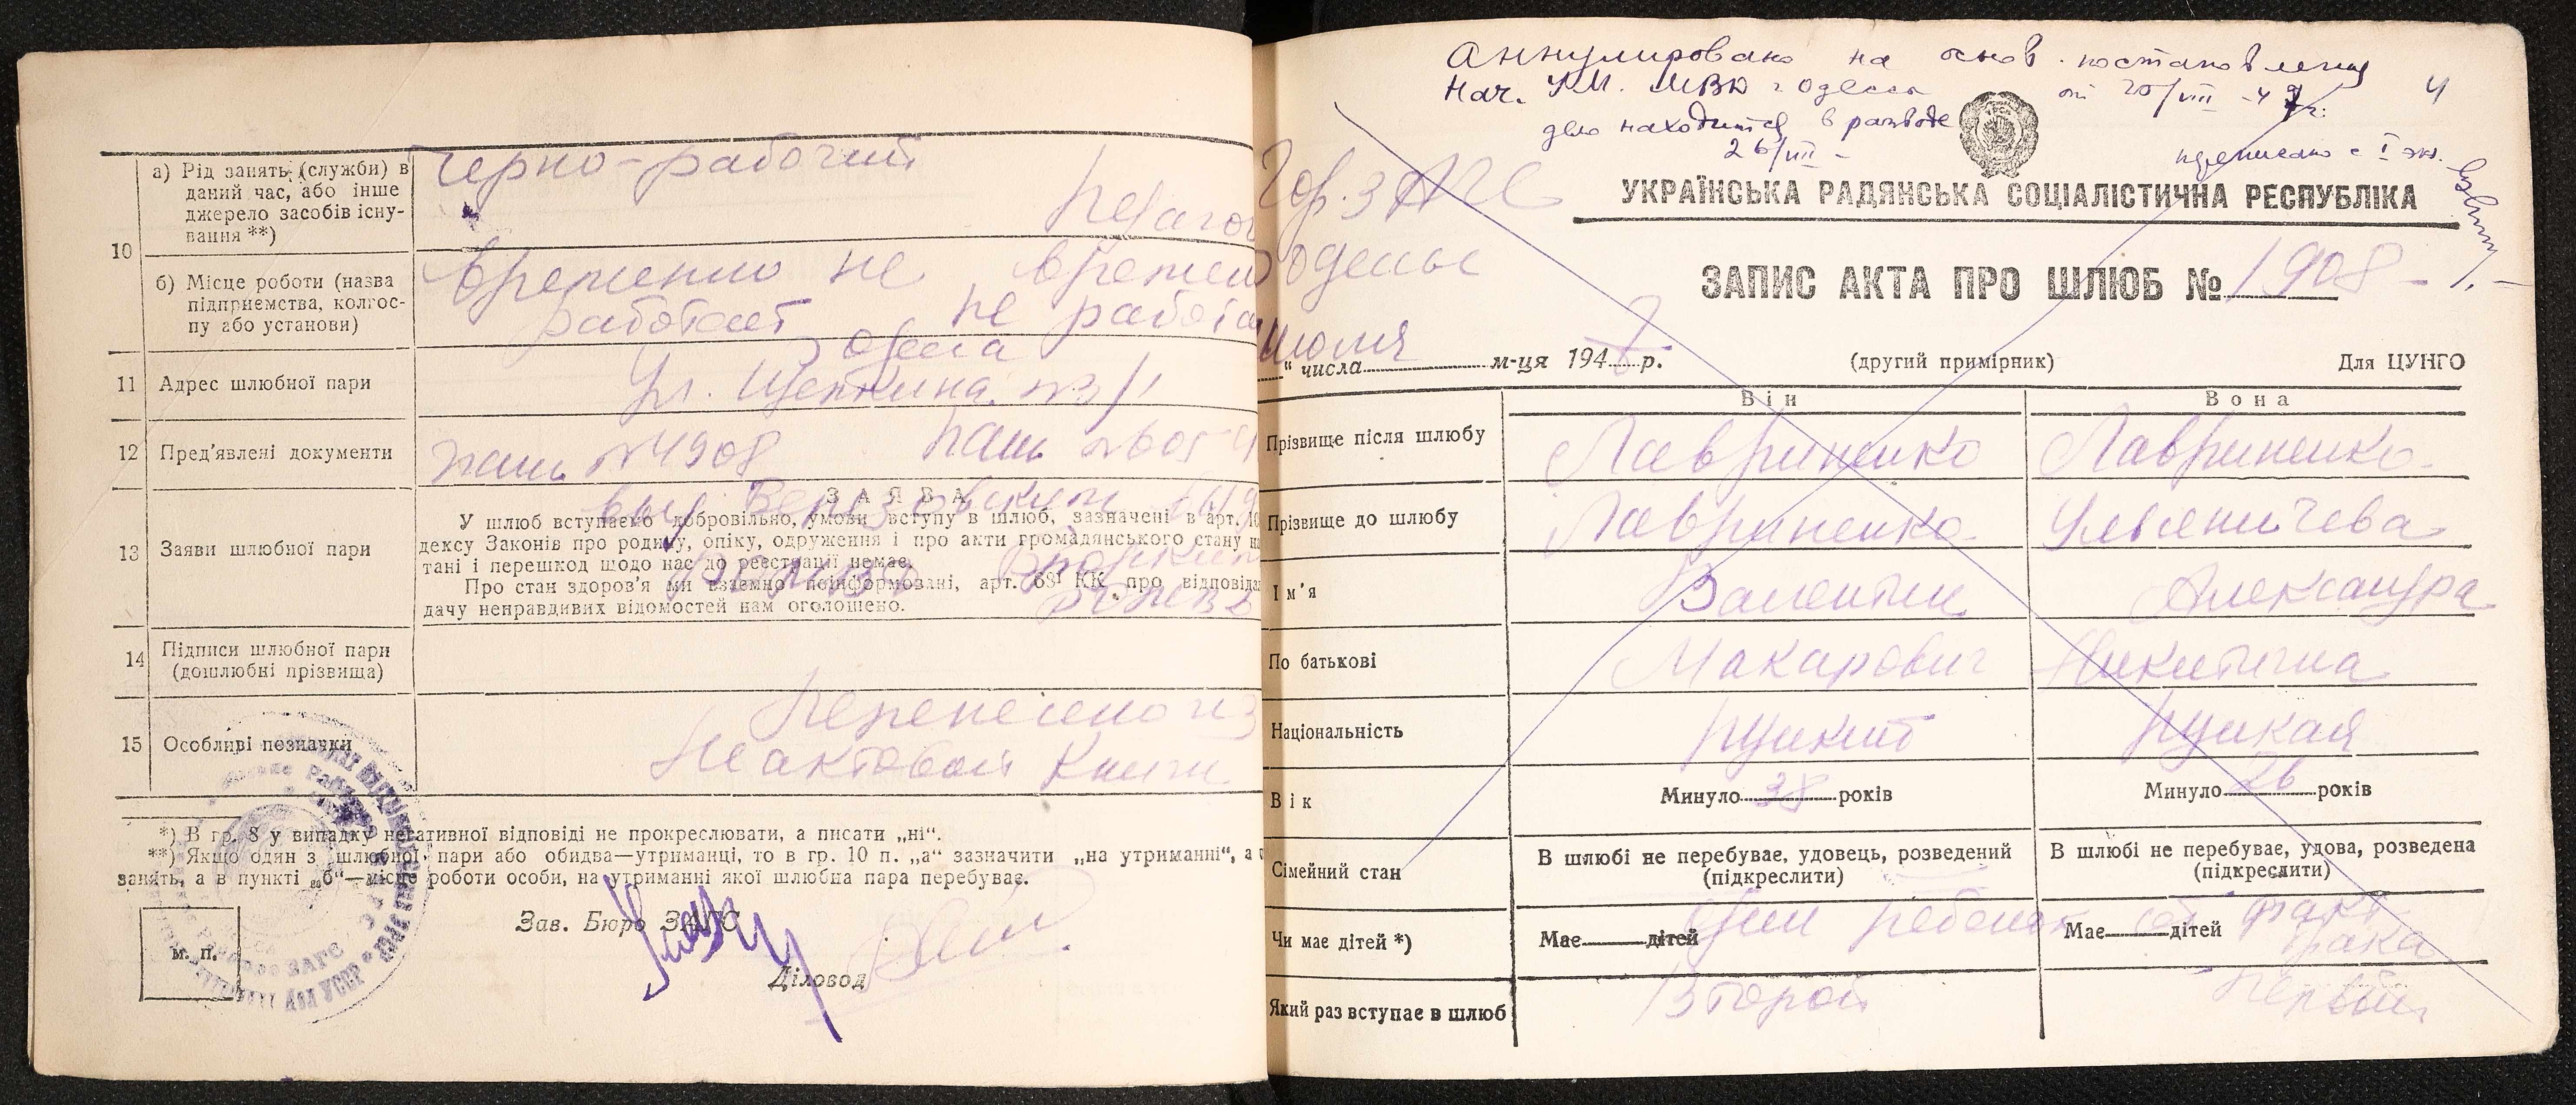 10
а) Рід занять (службы) в
даний час, або інше
джерело засобів існу-
вання **)
черно-рабочий
педагог
б) Місце роботи (назва
підприємства, колгос-
пу або установи)
временно не времен
работает не работа
11 Адрес шлюбної пари
г Одесса
ул. Щепкина №3/1
12 Пред'явлені документи
пасп №4908 пасп №605
13 Заяви шлюбної пари
ЗАЯВА
У шлюб вступаємо добровільно, умови вступу в шлюб, зазначені в арт. 10
дексу Законів про родину, опіку, одруження і про акти громадянського стану н
тані і перешкод щодо нас до реєстрації немає.
Про стан здоров'я ми взаємно поінформовані, арт. 68¹ КК про відповіда
дачу неправдивих відомостей нам оголошено.
14 Підписи шлюбної пари
(дошлюбні прізвища)
15 Особливі позначки
Перенесено из
Неактовой книги
*) В гр. 8 у випадку негативної відповіді не прокреслювати, а писати „ні“.
**) Якщо один з шлюбної пари або обидва—утриманці, то в гр. 10 п. „а“ зазначити „на утриманні“, а
занять, а в пункті „б“—місце роботи особи, на утриманні якої шлюбна пара перебуває.
м. п.
Зав. Бюро ЗАГС
Діловод
Аннулировано на основ. постановления
Нач. УМ. МВД г Одессы от 20/VIII -47г. 4
дело находится в разводе
26/VIII -
переписано с I экз.
Гор. ЗАГС
Одессы
УКРАЇНСЬКА РАДЯНСЬКА СОЦІАЛІСТИЧНА РЕСПУБЛІКА
ЗАПИС АКТА ПРО ШЛЮБ № 1908
“ числа Июля м-ця 194 р.
(другий примірник)
Для ЦУНГО
Він Вона
Прізвище після шлюбу Лавриненко Лавриненко
Прізвище до шлюбу Лавриненко Ульяничева
Ім'я Валентин Александра
По батькові Макарович Никитична
Національність Русский Русская
Вік Минуло 38 років Минуло 26 років
Сімейний стан
В шлюбі не перебуває, удовець, розведений
(підкреслити)
В шлюбі не перебуває, удова, розведена
(підкреслити)
Чи має дітей *) Має дітей один ребенок от факт Має дітей
брака
Який раз вступає в шлюб Второй Первый